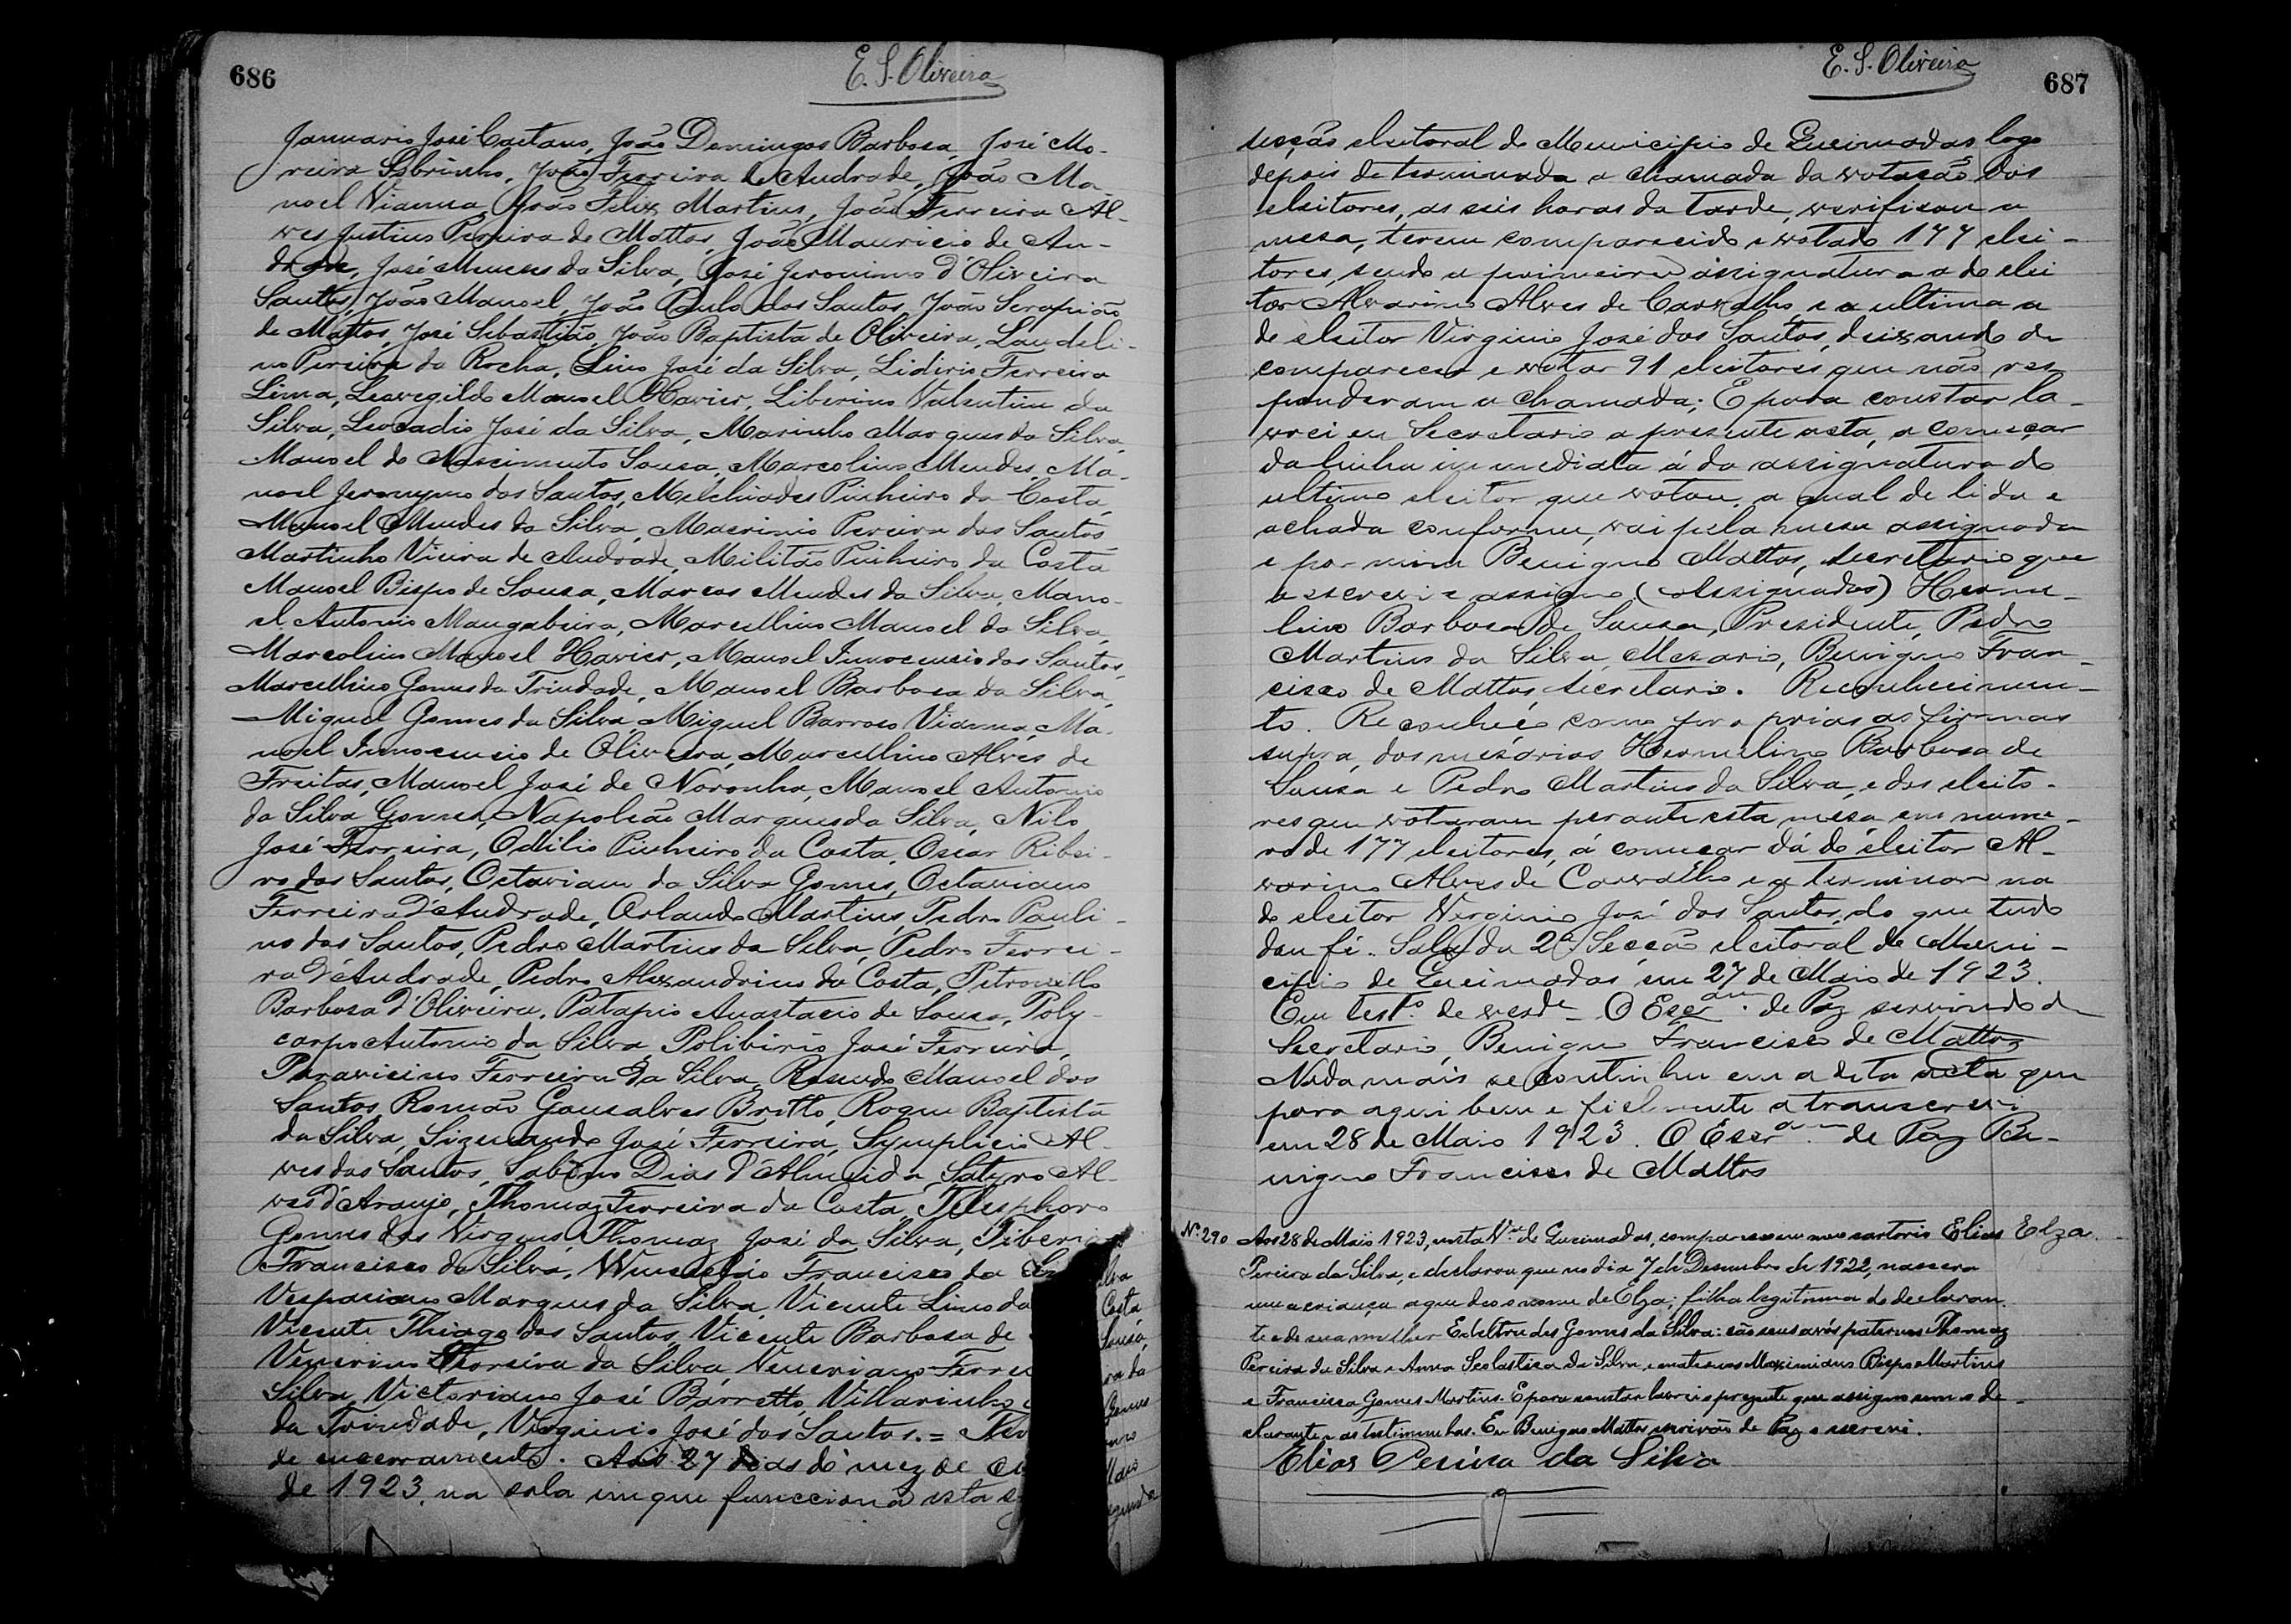 686
E. S. Oliveira
Januario José Caetano, João Domingos Barbosa, José Mo-
reira Sobrinho, João Ferreira d'Andrade, João Ma-
noel Vianna, João Felix Martins, João Ferreira Al-
ves, Justino Pereira de Mattos, João Mauricio de An-
drade, José Menezes da Silva, José Jeronimo d'Oliveira
Santos, João Manoel, João Paulo dos Santos, João Serapião
de Mattos, José Sebastião, João Baptista de Oliveira, Laudeli-
no Pereira da Rocha, Lino José da Silva, Lidirio Ferreira
Lima, Leovegildo Manoel Xavier, Liberino Valentim da
Silva, Leocadio José da Silva, Marinho Marques da Silva,
Manoel do Nascimento Sousa, Marcolino Mendes, Ma-
noel Jeronymo dos Santos, Melchiades Pinheiro da Costa,
Manoel Mendes da Silva, Macrinio Pereira dos Santos
Martinho Vieira de Andrade, Militão Pinheiro da Costa
Manoel Bispo de Sousa, Marcos Mendes da Silva, Mano-
el Antonio Mangabeira, Marcellino Manoel da Silva,
Marcolino Manoel Xavier, Manoel Innocencio dos Santos,
Marcellino Gomes da Trindade, Manoel Barbosa da Silva,
Miguel Gomes da Silva, Miguel Barroso Vianna, Ma-
noel Innocencio de Oliveira, Marcellino Alves de
Freitas, Manoel José de Noronha, Manoel Antonio
da Silva Gomes, Napoleão Marques da Silva, Nilo
José Ferreira, Odilio Pinheiro da Costa, Oscar Ribei-
ro dos Santos, Octaviano da Silva Gomes, Octaviano
Ferreira d'Andrade, Orlando Martins, Pedro Pauli-
no dos Santos, Pedro Martins da Silva, Pedro Ferrei-
ra d'Andrade, Pedro Alexandrino da Costa, Petronillo
Barbosa d'Oliveira, Patapio Anastacio de Sousa, Poly-
carpo Antonio da Silva, Polibirio José Ferreira,
Paravicino Ferreira da Silva, Rosendo Manoel dos
Santos, Romão Gonsalves Britto, Roque Baptista
da Silva, Sizenando José Ferreira, Symplicio Al-
ves dos Santos, Sabino Dias d'Almeida, Satyro Al-
ves d'Araujo, Thomaz Ferreira da Costa, Telesphoro
Gomes das Virgens, Thomaz José da Silva, Tiberio
Francisco da Silva, Wenceslão Francisco da Silva
Vespasiano Marques da Silva, Vicente Lino da Costa,
Vicente Thiago dos Santos, Vicente Barbosa de Sousa,
Venerino Ferreira da Silva, Veneriano Ferreira da
Silva, Victoriano José Barretto, Villarinho Gomes
da Trindade, Virginio José dos Santos. =
de encerramento. Aos 27 dias do mez de Maio
de 1923, na sala em que funcciona esta segunda
687
E. S. Oliveira
secção eleitoral do Municipio de Queimadas logo
depois de terminada a chamada da votação dos
eleitores, as seis horas da tarde, verificou a
mesa, terem comparecido e votado 177 elei-
tores, sendo a primeira assignatura a do elei
tor Alvarino Alves de Carvalho, e a ultima a
do eleitor Virginio José dos Santos, deixando de
comparecer e votar 91 eleitores que não res
ponderam a chamada; E para constar la-
vrei eu Secretario a presente acta, a começar
da linha immediata á da assignatura do
ultimo eleitor que votou, a qual de lida e
achada conforme, vai pela mesa assignada
e por mim Benigno Mattos, secretario que
a escrevi e assigno. (Assignados) Herme-
lino Barbosa de Sousa, Presidente, Pedro
Martins da Silva, Mesario, Benigno Fran-
cisco de Mattos secretario. Reconhecimen-
to. Reconheço como proprias as firmas
supra, dos mesarios Hermelino Barbosa de
Sousa e Pedro Martins da Silva, e dos eleito-
res que votaram perante esta mesa em nume-
ro de 177 eleitores, á começar dá do eleitor Al-
varino Alves de Carvalho e a terminar na
do eleitor Verginio José dos Santos, do que tudo
dou fé. Sala da 2ª Secção eleitoral do Muni-
cipio de Queimadas em 27 de Maio de 1923.
Em testº de verdᵉ O Escrᵃᵐ de Paz servindo de
Secretario, Benigno Francisco de Mattos
Nada mais se continha em a dita acta que
para aqui bem e fielmente a transcrevi
em 28 de Maio 1923. O Escrᵃᵐ de Paz Be-
nigno Francisco de Mattos
Nº 290 Aos 28 de Maio 1923, nesta Vª de Queimadas, compareceu em meu cartorio Elias Elza.
Pereira da Silva, e declarou que no dia 7 de Dezembro de 1922, nascera
uma criança a que deo o nome de Elza; filha legitima do declaran-
te e de sua mulher Edeltrudes Gomes da Silva: são seus avós paternos Thomaz
Pereira da Silva e Anna Scolastica da Silva, e maternos Maximiano Bispo Martins
e Francisca Gomes Martins. E para constar lavrei o presente que assigno com o de-
clarante e as testimunhas. Eu Benigno Mattos escrivão de Paz o escrevi.
Elias Pereira da Silva